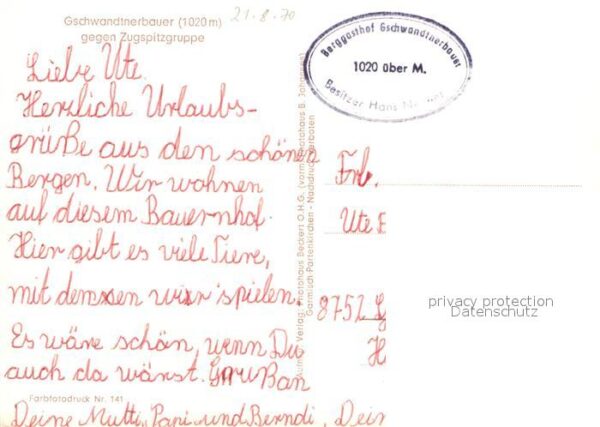 21.8.70
Gschwandtnerbauer (1020 m)
gegen Zugspitzgruppe
Berggasthof Gschwandtnerbauer
1020 über M.
Besitzer Hans
Liebe Ute.
Herzliche Urlaubs-
grüße aus den schönen
Bergen. Wir wohnen
auf diesem Bauernhof.
Hier gibt es viele Tiere,
mit denen wir spielen.
Es wäre schön, wenn Du
auch da wärst. Gruß an
Deine Mutti, Papi und Berndi. Dein
Farbfotodruck Nr. 141
Verlag: Photohaus Beckert O.H.G. (vorm. Photohaus B. Johannes)
Garmisch-Partenkirchen - Nachdruck verboten
Frl.
Ute E
8752
H
privacy protection
Datenschutz